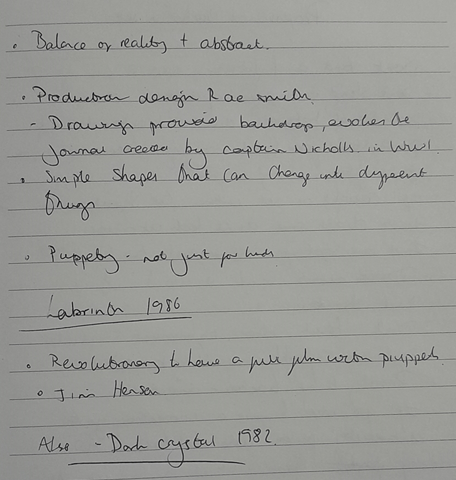 • Balance of reality + abstract.
• Production design Rae Smith.
- Drawings provide backdrop, evokes the
Journal created by captain Nicholls in WW1.
• Simple shapes that can change into different
things
• Puppetry - not just for kids
Labrinth 1986
• Revolutionary to have a full film with puppets
• Jim Henson
Also - Dark crystal 1982.